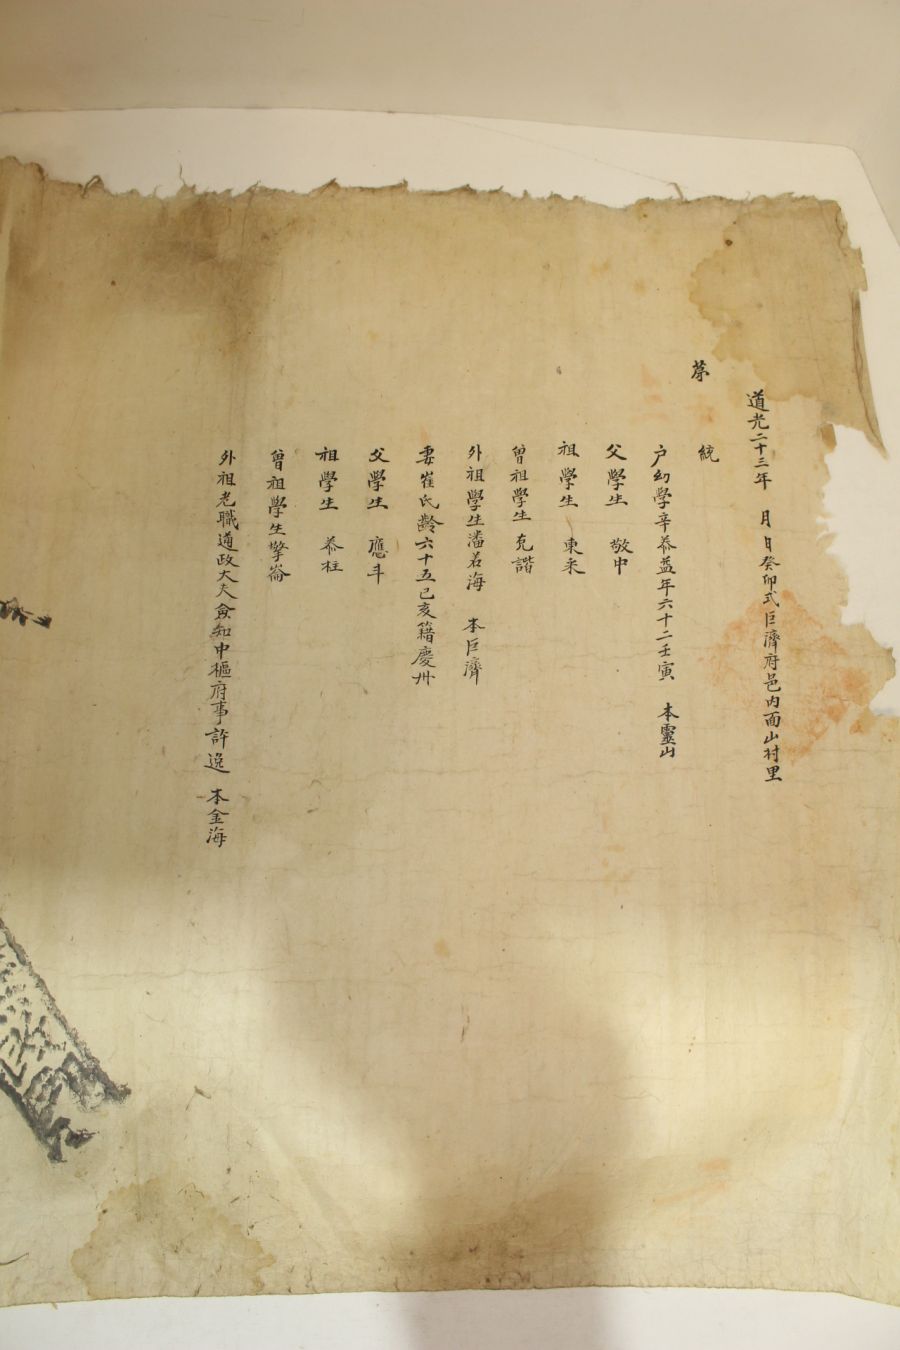 道光二十三年 月 日癸卯式巨濟府邑內面山村里
第 統
户幼學辛恭益年六十二壬寅 本靈山
父學生 敬中
祖學生 東釆
曾祖學生 克諧
外祖學生潘若海 本巨濟
妻崔氏齡六十五己亥籍慶州
父學生 應斗
祖學生 恭柱
曾祖學生擎崙
外祖老職通政大夫僉知中樞府事許逸 本金海